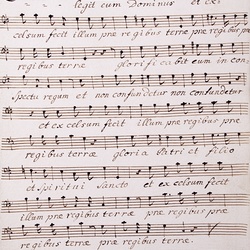 legit eum Dominus et ex:
celsum fecit illum præ regibus terræ præ regibus præ
regibus terræ glorificabit eum in con,
spectu regum et non confundetur non confundetur
et ex celsum fecit illum præ regibus præ
regibus terræ gloria Patri et filio
et spiritui Sancto et ex celsum fecit
illum præ regibus terræ præ regibus terræ
præ regibus terræ.